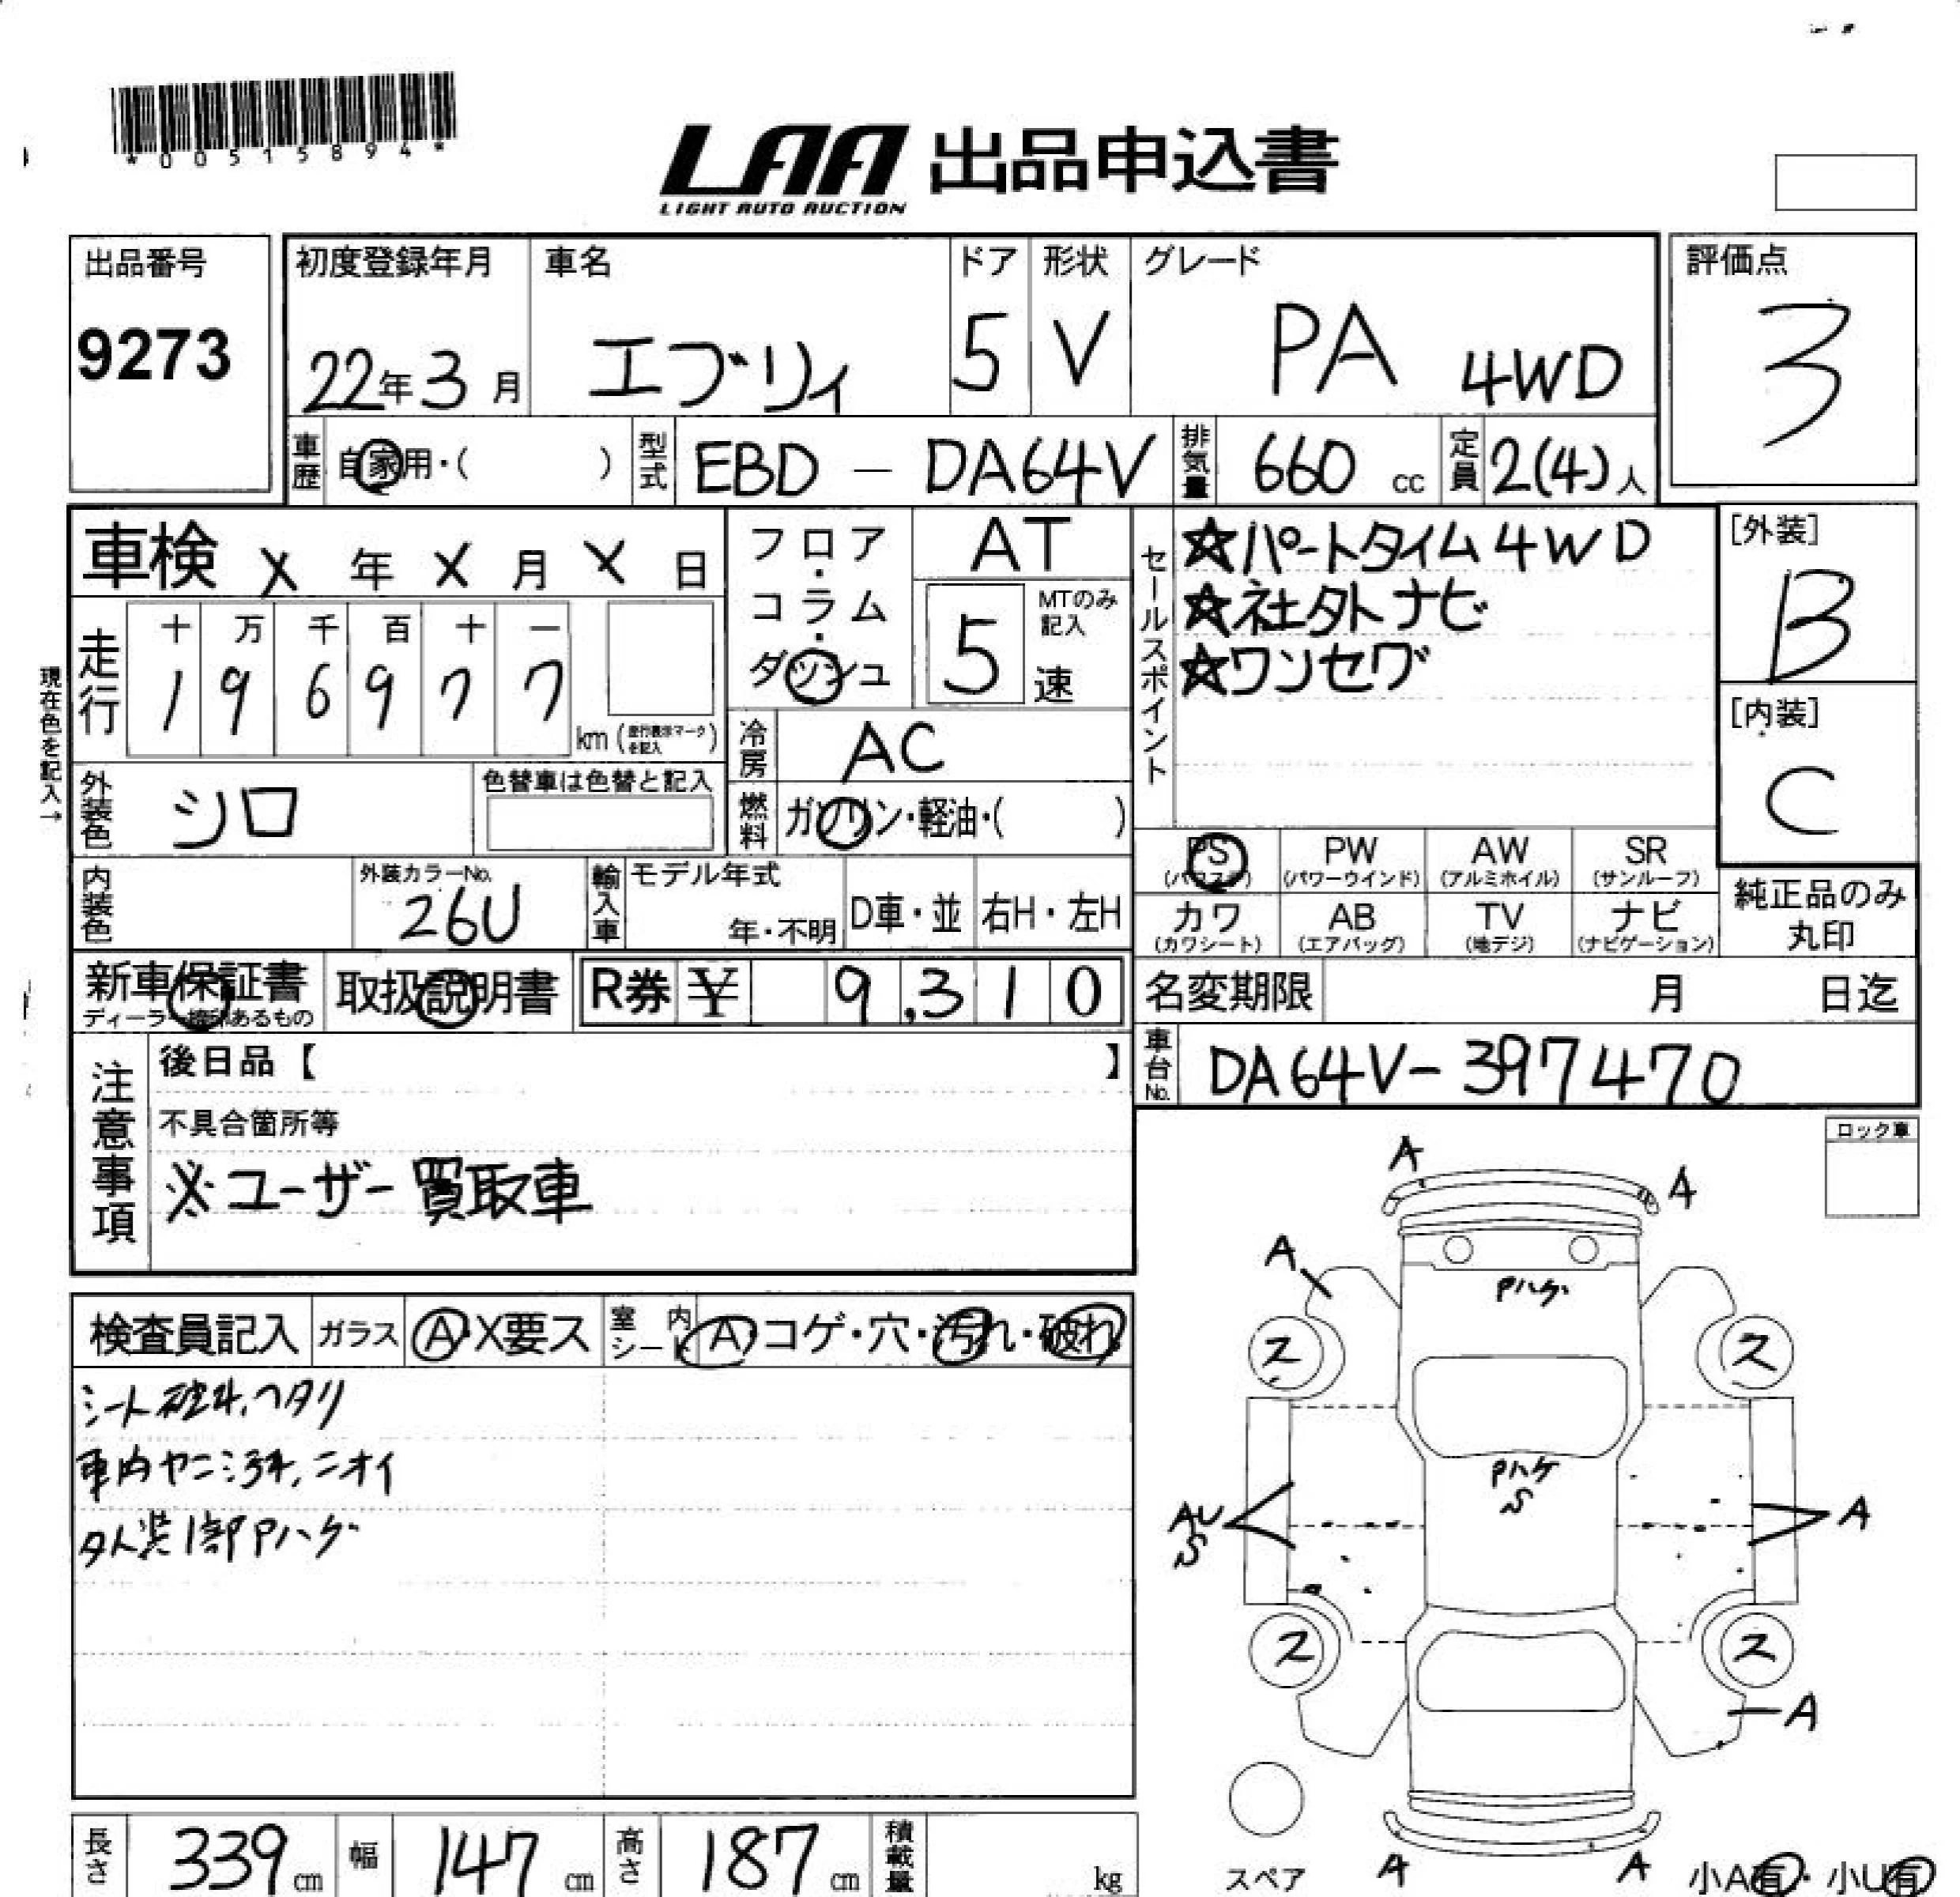 *00515894*
LAA 出品申込書
LIGHT AUTO AUCTION
出品番号
9273
初度登録年月
22年3月
車名
エブリィ
ドア
5
形状
V
グレード
PA 4WD
評価点
3
車歴
自家用・( )
型式
EBD - DA64V
排気量
660 cc
定員
2(4)人
車検 X 年 X 月 X 日
フロア・コラム・ダッシュ
AT
5
MTのみ記入
速
セールスポイント
☆パートタイム4WD
☆社外ナビ
☆ワンセグ
[外装]
B
[内装]
C
現在色を記入→
走行
十 万 千 百 十 一
1 9 6 9 7 7
km (走行表示マークを記入)
冷房
AC
外装色
シロ
色替車は色替と記入
燃料
ガソリン・軽油・( )
内装色
外装カラーNo.
26U
輸入車
モデル年式
年・不明
D車・並
右H・左H
PS PW AW SR
(パワステ) (パワーウインド) (アルミホイル) (サンルーフ)
カワ AB TV ナビ
(カワシート) (エアバッグ) (地デジ) (ナビゲーション)
純正品のみ
丸印
新車保証書
ディーラー捺印あるもの
取扱説明書
R券 ¥ 9,310
名変期限 月 日迄
車台No.
DA64V-397470
注意事項
後日品【 】
不具合箇所等
※ユーザー買取車
ロック車
検査員記入
ガラス
A・X要ス
室内シート
A・コゲ・穴・汚れ・破れ
シート破れ、ヘタリ
車内ヤニ汚れ、ニオイ
外装1部Pハゲ
A
A
A
Pハゲ
ス
ス
Pハゲ
S
AU
S
A
ス
ス
A
スペア
A
A
小A有・小U有
長さ
339 cm
幅
147 cm
高さ
187 cm
積載量
kg